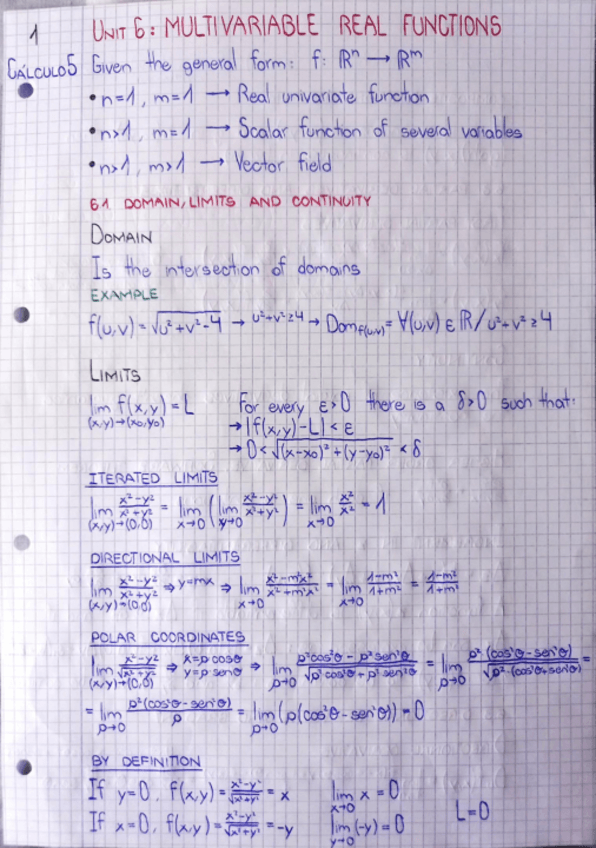 1
UNIT 6: MULTIVARIABLE REAL FUNCTIONS
CÁLCULO5
Given the general form: f: ℝⁿ → ℝᵐ
• n=1, m=1 → Real univariate function
• n>1, m=1 → Scalar function of several variables
• n>1, m>1 → Vector field
6.1 DOMAIN, LIMITS AND CONTINUITY
DOMAIN
Is the intersection of domains
EXAMPLE
f(u,v) = √(u²+v²-4) → u²+v²≥4 → Dom_f(u,v) = ∀(u,v) ∈ ℝ / u²+v² ≥ 4
LIMITS
lim f(x,y) = L For every ε>0 there is a δ>0 such that:
(x,y)→(x₀,y₀) → |f(x,y)-L| < ε
→ 0 < √((x-x₀)² + (y-y₀)²) < δ
ITERATED LIMITS
lim (x,y)→(0,0) (x²-y²)/(x²+y²) = lim x→0 (lim y→0 (x²-y²)/(x²+y²)) = lim x→0 x²/x² = 1
DIRECTIONAL LIMITS
lim (x,y)→(0,0) (x²-y²)/(x²+y²) ⇒ y=mx ⇒ lim x→0 (x²-m²x²)/(x²+m²x²) = lim x→0 (1-m²)/(1+m²) = (1-m²)/(1+m²)
POLAR COORDINATES
lim (x,y)→(0,0) (x²-y²)/√(x²+y²) ⇒ x=ρ cosθ y=ρ senθ ⇒ lim ρ→0 (ρ²cos²θ - ρ²sen²θ)/√(ρ²cos²θ + ρ²sen²θ) = lim ρ→0 (ρ²(cos²θ - sen²θ))/√(ρ²·(cos²θ+sen²θ)) =
= lim ρ→0 (ρ²(cos²θ - sen²θ))/ρ = lim ρ→0 (ρ(cos²θ - sen²θ)) = 0
BY DEFINITION
If y=0, f(x,y) = (x²-y²)/√(x²+y²) = x lim x→0 x = 0
If x=0, f(x,y) = (x²-y²)/√(x²+y²) = -y lim y→0 (-y) = 0 L=0